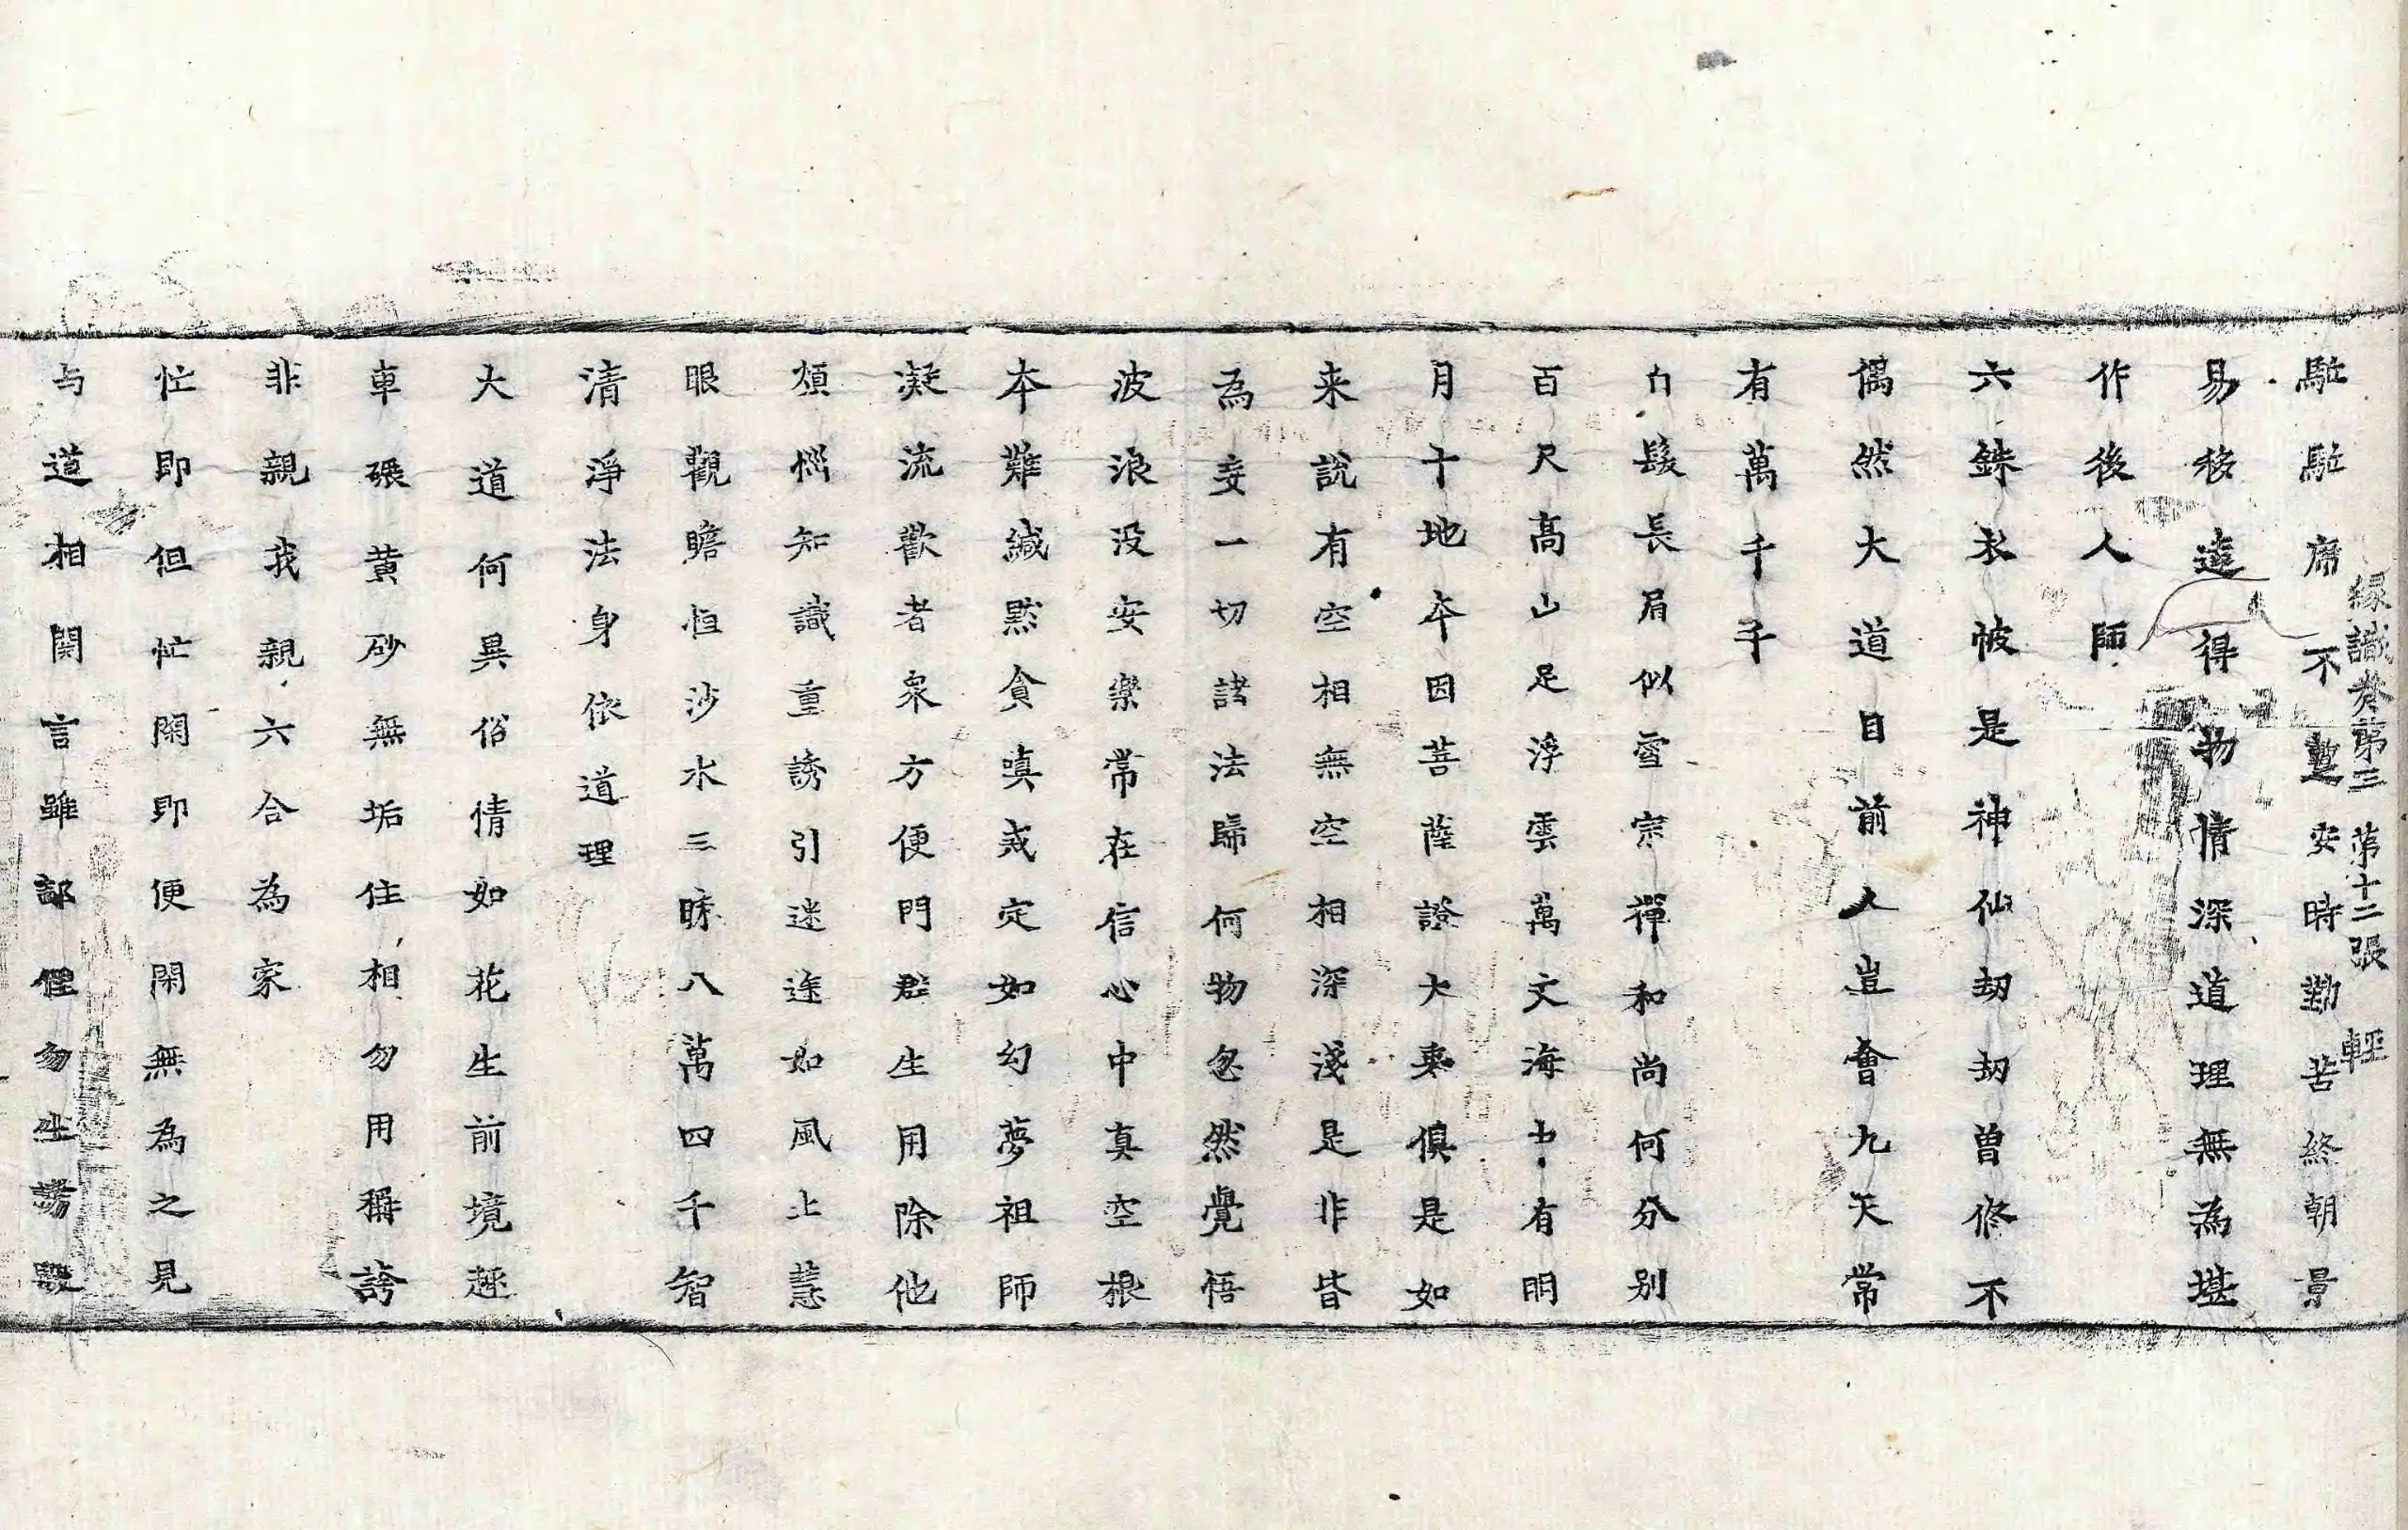 駈駈席不蹔安時勤苦終朝景
緣識卷第三　第十二張　輕
易移達得物情深道理無為堪
作後人師
六銖衣帔是神仙刼刼曾修不
偶然大道目前人豈會九天常
有萬千千
鬚長眉似雪宗禪和尚何分別
百尺高山足浮雲萬文海士有明
月十地本因菩薩證大乘俱是如
来說有空相無空相深淺是非皆
為妄一切諸法歸何物忽然覺悟
波浪没安樂常在信心中真空根
本難緘黙貪嗔戒定如幻夢祖師
凝流歡者衆方便門群生用除他
煩惱知識重誘引迷途如風上慧
眼觀瞻恒沙水三昧八萬四千智
清淨法身依道理
大道何異俗情如花生前境趣
車碾黄砂無垢住相勿用稱誇
非親我親六合為家
忙即但忙閑即便閑無為之見
与道相関言雖勿